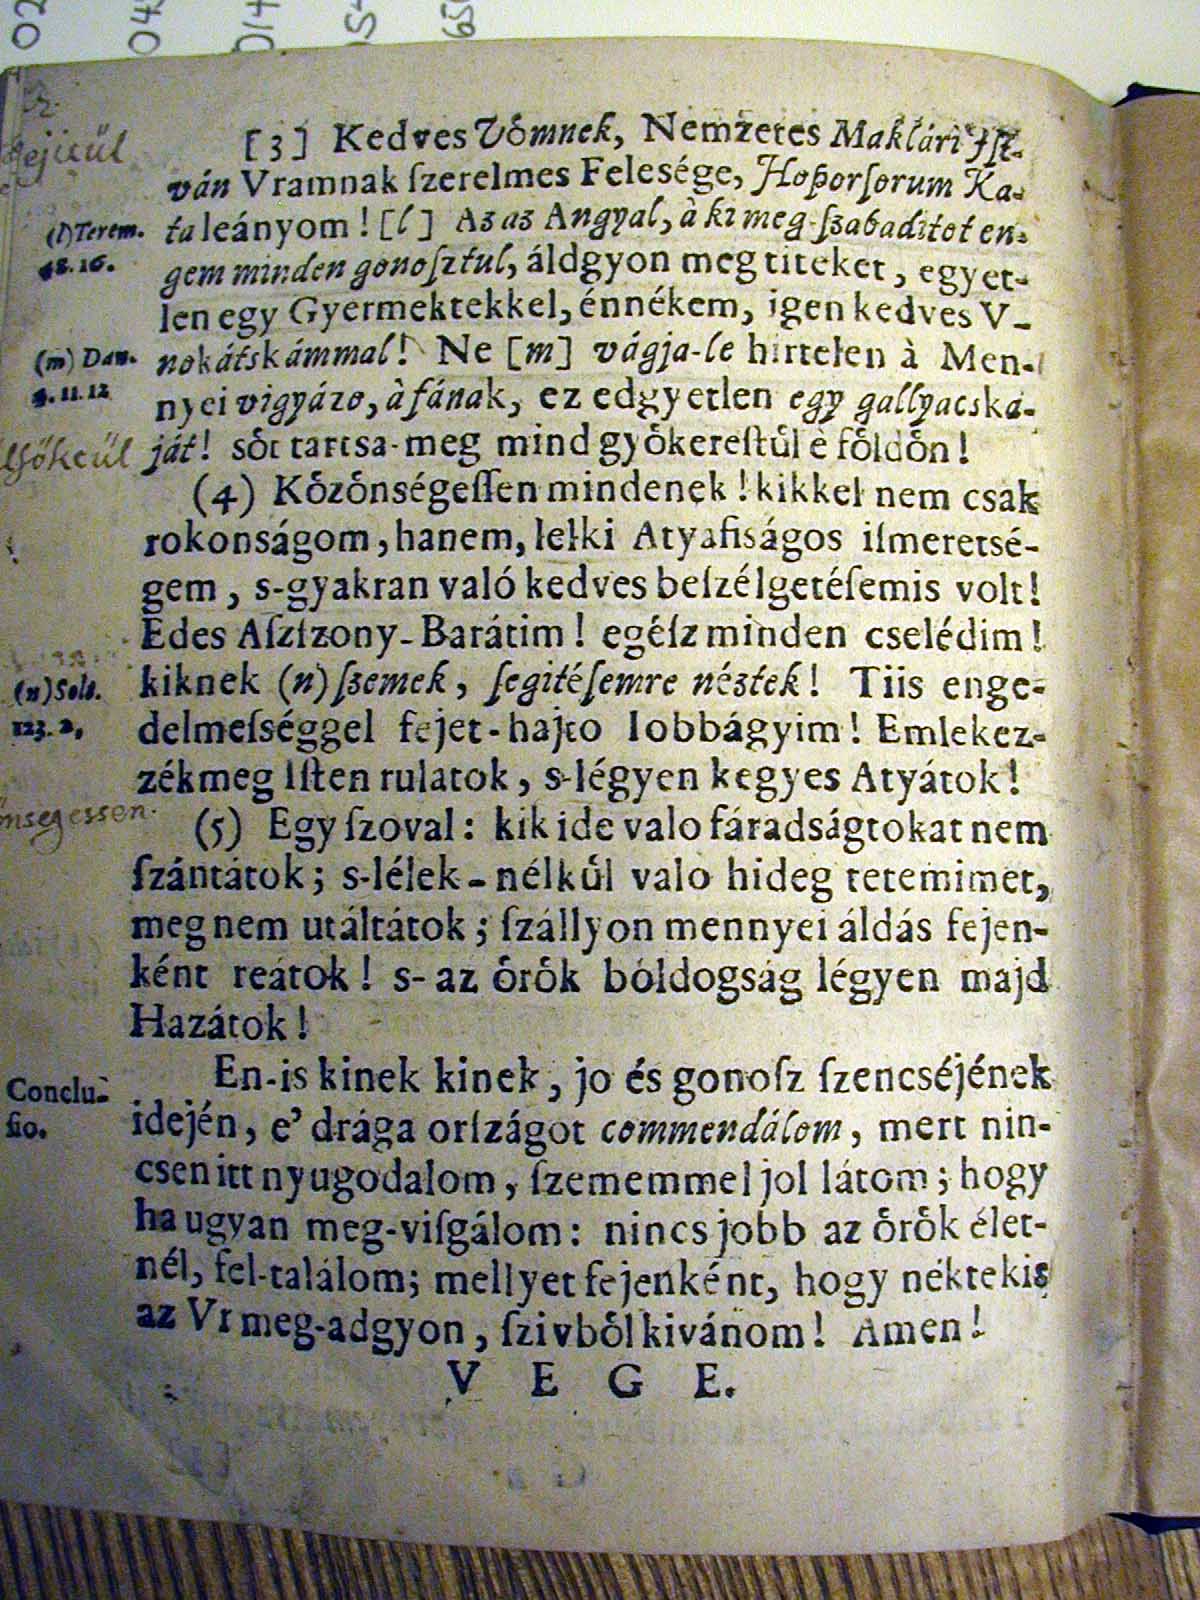 [3] Kedves Vőmnek, Nemzetes Maklári Iſt-
ván Vramnak ſzerelmes Felesége, Hoporſorum Ka-
ta leányom! [l] Az az Angyal, à ki meg-ſzabaditot en-
(l) Terem.
48. 16.
gem minden gonoſztul, áldgyon meg titeket, egyet-
len egy Gyermektekkel, énnékem, igen kedves V-
nokátskámmal! Ne [m] vágja-le hirtelen à Men-
(m) Dan.
4. 11. 12
nyei vigyázo, à fának, ez edgyetlen egy gallyacská-
ját! sőt tartsa-meg mind gyỏkereſtűl è fỏldỏn!
(4) Kỏzỏnségeſſen mindenek! kikkel nem csak
rokonságom, hanem, lelki Atyafiságos iſmeretsé-
gem, s-gyakran való kedves beſzélgetéſemis volt!
Edes Aſzſzony-Barátim! egéſz minden cselédim!
kiknek (n) ſzemek, ſegitéſemre néztek! Tiis enge-
(n) Solt.
123. 2,
delmeſséggel fejet-hajto Iobbágyim! Emlekez-
zékmeg Iſten rulatok, s-légyen kegyes Atyátok!
(5) Egy ſzoval: kik ide valo fáradságtokat nem
ſzántátok; s-lélek-nélkűl valo hideg tetemimet,
meg nem utáltátok; ſzállyon mennyei áldás fejen-
ként reátok! s-az ỏrỏk bóldogság légyen majd
Hazátok!
En-is kinek kinek, jo és gonoſz ſzencséjének
Conclu-
ſio.
idején, e' drága orſzágot commendálom, mert nin-
csen itt nyugodalom, ſzememmel jol látom; hogy
ha ugyan meg-viſgálom: nincs jobb az ỏrỏk élet-
nél, fel-találom; mellyet fejenként, hogy néktekis
az Vr meg-adgyon, ſzivbỏl kivánom! Amen!
V E G E.